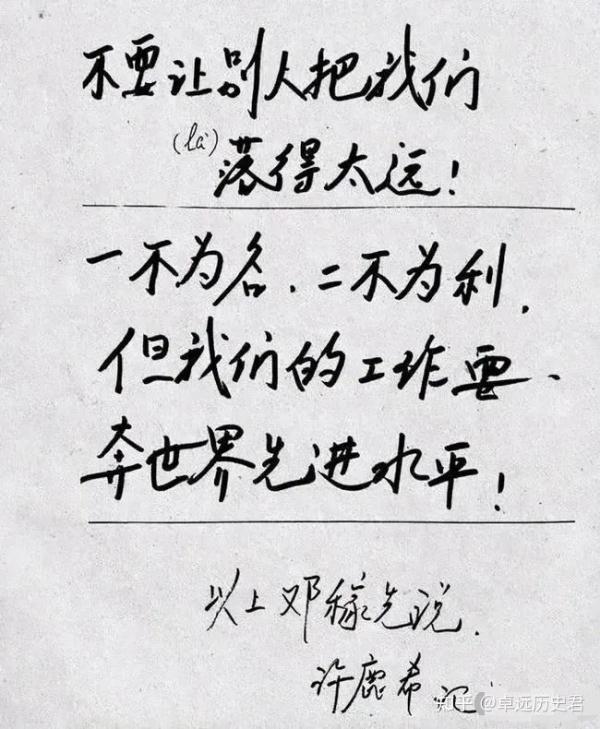 不要让别人把我们
(là)
落得太远！
一不为名、二不为利，
但我们的工作要、
奔世界先进水平！
以上邓稼先说．
许鹿希 记
知乎 @卓远历史君